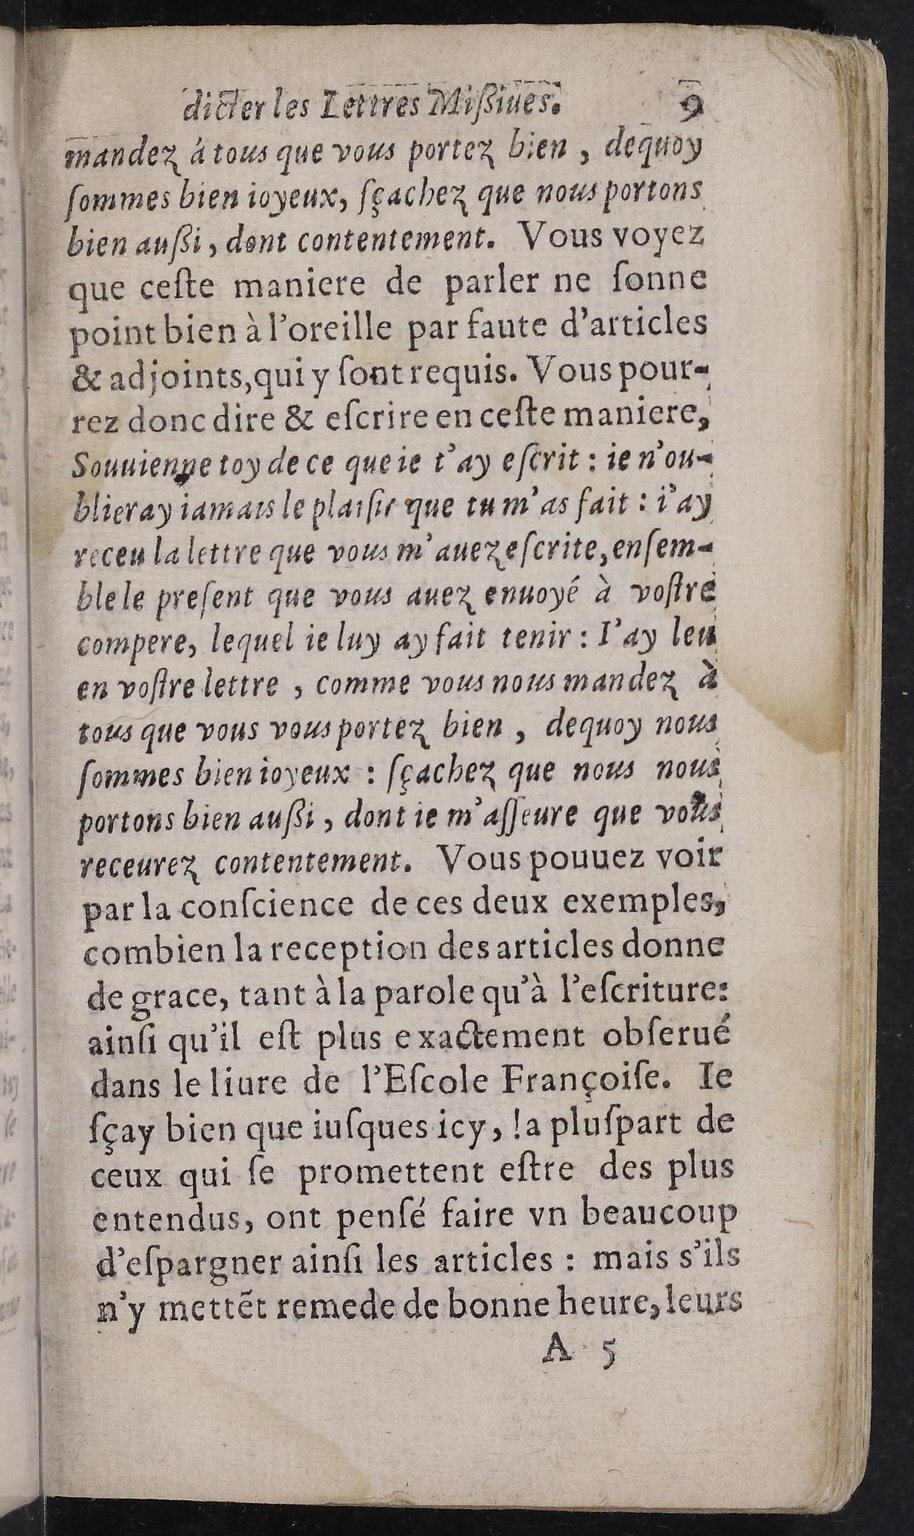 dicter les Lettres Miſſiues. 9
mandez à tous que vous portez bien , dequoy
ſommes bien ioyeux, ſçachez que nous portons
bien auſſi , dont contentement. Vous voyez
que ceſte maniere de parler ne ſonne
point bien à l'oreille par faute d'articles
& adjoints, qui y ſont requis. Vous pour-
rez donc dire & eſcrire en ceſte maniere,
Souuienne toy de ce que ie t'ay eſcrit : ie n'ou-
blieray iamais le plaiſir que tu m'as fait : i'ay
receu la lettre que vous m'auez eſcrite, enſem-
ble le preſent que vous auez enuoyé à voſtre
compere, lequel ie luy ay fait tenir : I'ay leu
en voſtre lettre , comme vous nous mandez à
tous que vous vous portez bien , dequoy nous
ſommes bien ioyeux : ſçachez que nous nous
portons bien auſſi , dont ie m'aſſeure que vous
receurez contentement. Vous pouuez voir
par la conſcience de ces deux exemples,
combien la reception des articles donne
de grace, tant à la parole qu'à l'eſcriture:
ainſi qu'il eſt plus exactement obſerué
dans le liure de l'Eſcole Françoiſe. Ie
ſçay bien que iuſques icy, la pluſpart de
ceux qui ſe promettent eſtre des plus
entendus, ont penſé faire vn beaucoup
d'eſpargner ainſi les articles : mais s'ils
n'y mettẽt remede de bonne heure, leurs
A 5